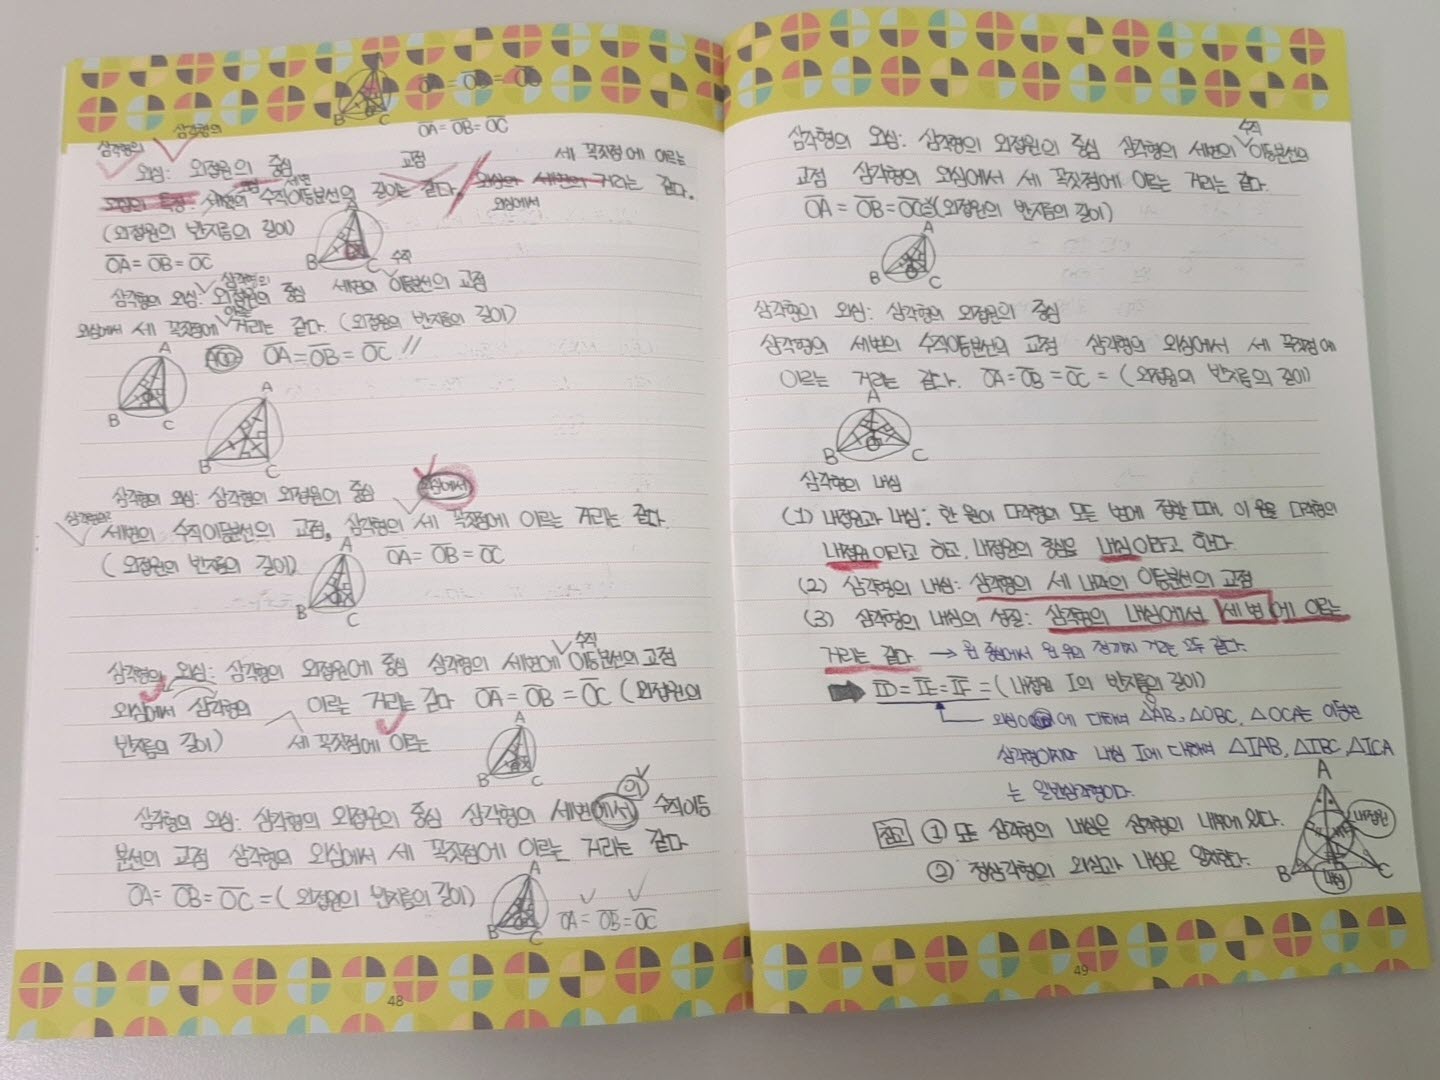 A
B C
OA = OB = OC
OA = OB = OC
삼각형의
삼각형의
외심: 외접원의 중심
교점
세 꼭짓점에 이르는
세변의 수직이등분선의 길이는 같다. 외심의 세변의 거리는 같다.
교점 세변
외심에서
(외접원의 반지름의 길이)
OA = OB = OC
A
B C
삼각형의
수직
삼각형의 외심: 외접원의 중심 세변의 이등분선의 교점
이르는
외심에서 세 꼭짓점에 거리는 같다. (외접원의 반지름의 길이)
OA = OB = OC //
A
B C
A
B C
삼각형의 외심: 삼각형의 외접원의 중심
외심에서
삼각형의
세변의 수직이등분선의 교점, 삼각형의 세 꼭짓점에 이르는 거리는 같다.
(외접원의 반지름의 길이)
OA = OB = OC
A
B C
수직
삼각형의 외심: 삼각형의 외접원에 중심 삼각형의 세변에 이등분선의 교점
외심에서 삼각형의 이르는 거리는 같다 OA = OB = OC (외접원의
반지름의 길이) 세 꼭짓점에 이르는
A
B C
의
삼각형의 외심: 삼각형의 외접원의 중심 삼각형의 세변에서 수직이등
분선의 교점 삼각형의 외심에서 세 꼭짓점에 이르는 거리는 같다
OA = OB = OC = (외접원의 반지름의 길이)
A
B C
OA = OB = OC
48
수직
삼각형의 외심: 삼각형의 외접원의 중심 삼각형의 세변의 이등분선의
교점 삼각형의 외심에서 세 꼭짓점에 이르는 거리는 같다.
OA = OB = OC = (외접원의 반지름의 길이)
A
B C
삼각형의 외심: 삼각형의 외접원의 중심
삼각형의 세변의 수직이등분선의 교점 삼각형의 외심에서 세 꼭짓점에
이르는 거리는 같다. OA = OB = OC = (외접원의 반지름의 길이)
A
B C
삼각형의 내심
(1) 내접원과 내심: 한 원이 다각형의 모든 변에 접할 때, 이 원을 다각형의
내접원이라고 하고, 내접원의 중심을 내심이라고 한다.
(2) 삼각형의 내심: 삼각형의 세 내각의 이등분선의 교점
(3) 삼각형의 내심의 성질: 삼각형의 내심에서 세 변에 이르는
거리는 같다. → 원 중심에서 원 위의 점까지 거리는 모두 같다.
ID = IE = IF = (내접원 I의 반지름의 길이)
외심 에 대하여 △OAB, △OBC, △OCA는 이등변
삼각형이지만 내심 I에 대하여 △IAB, △IBC, △ICA
는 일반삼각형이다.
참고 ① 모든 삼각형의 내심은 삼각형의 내부에 있다.
② 정삼각형의 외심과 내심은 일치한다.
A
내접원
B 내심 C
49